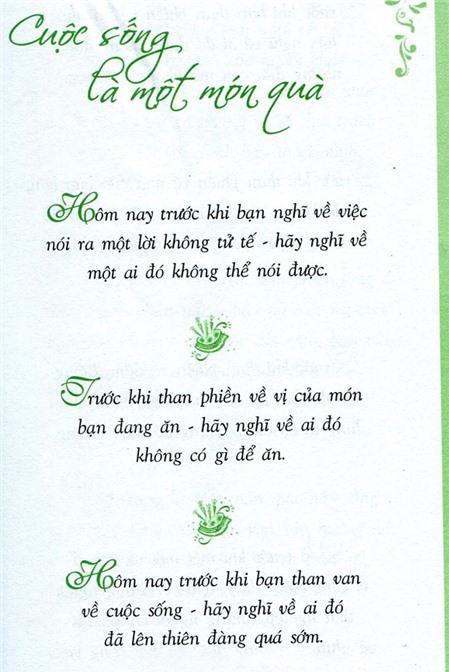 Cuộc sống
là một món quà
Hôm nay trước khi bạn nghĩ về việc
nói ra một lời không tử tế - hãy nghĩ về
một ai đó không thể nói được.
Trước khi than phiền về vị của món
bạn đang ăn - hãy nghĩ về ai đó
không có gì để ăn.
Hôm nay trước khi bạn than van
về cuộc sống - hãy nghĩ về ai đó
đã lên thiên đàng quá sớm.